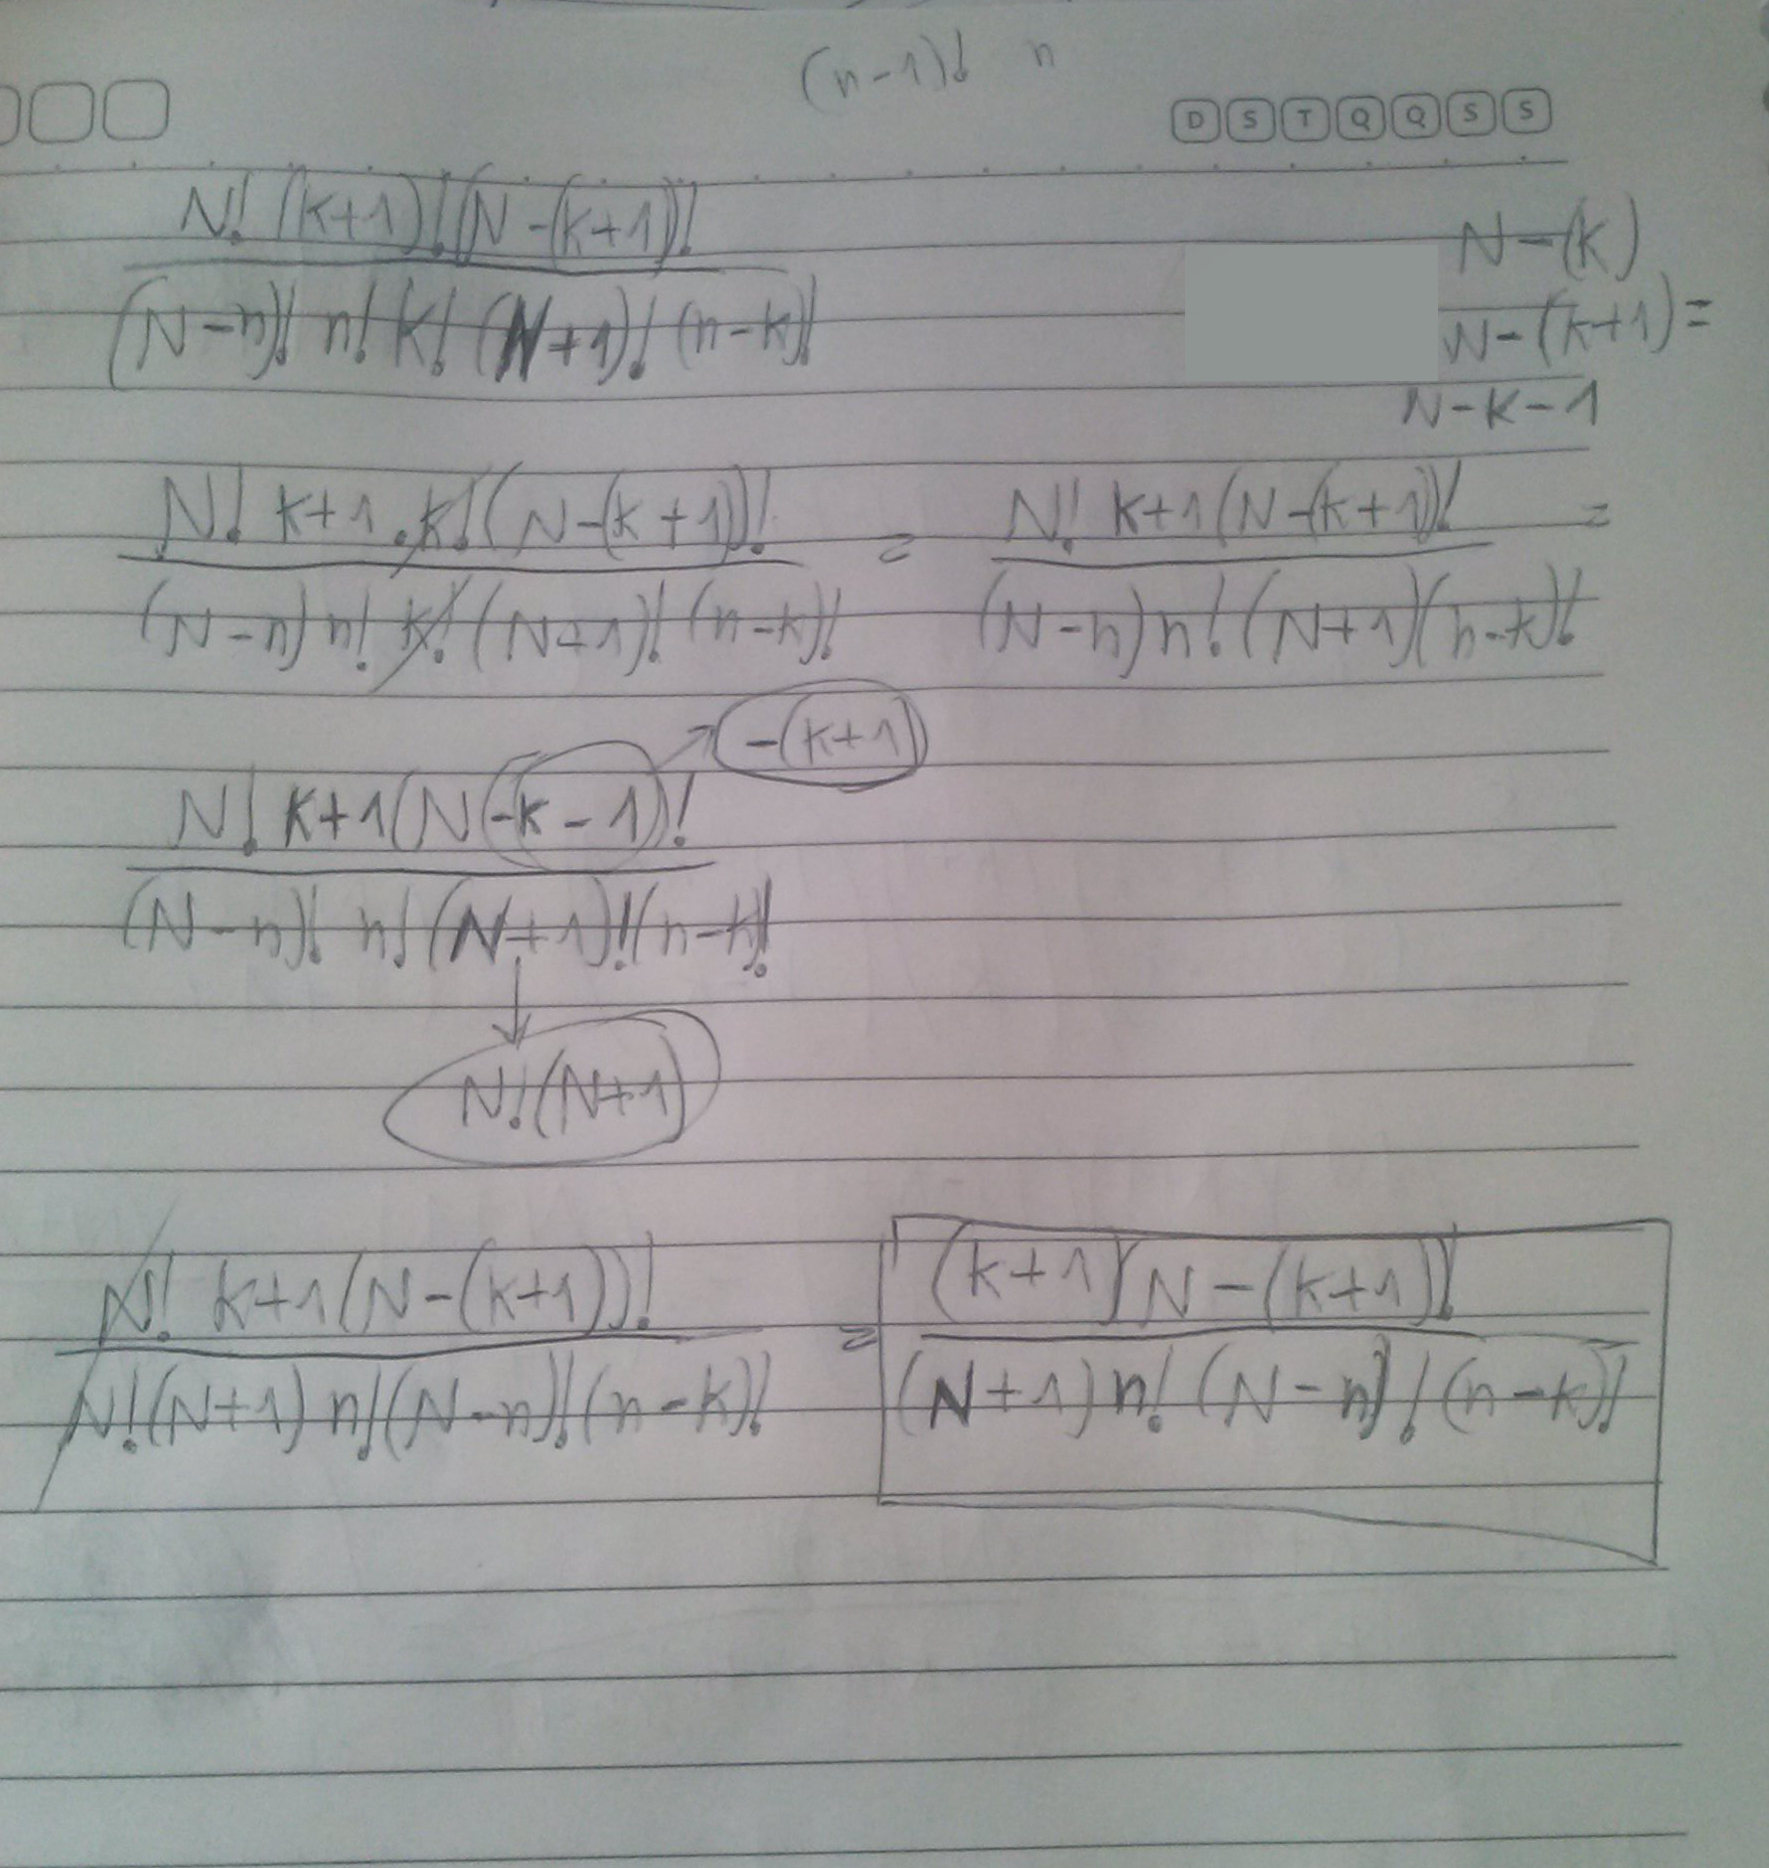 (n-1)! n
D S T Q Q S S
N! (k+1)! (N-(k+1))!
(N-n)! n! k! (N+1)! (n-k)!
N-(k)
N-(k+1)=
N-k-1
N! k+1 . k! (N-(k+1))! = N! k+1 (N-(k+1))! =
(N-n) n! k! (N+1)! (n-k)! (N-n) n! (N+1) (n-k)!
-(k+1)
N! k+1 (N-k-1)!
(N-n)! n! (N+1)! (n-k)!
N! (N+1)
N! k+1 (N-(k+1))! = (k+1)(N-(k+1))!
N! (N+1) n! (N-n)! (n-k)! (N+1) n! (N-n)! (n-k)!